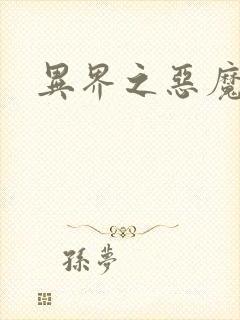 異界之惡魔
孫夢